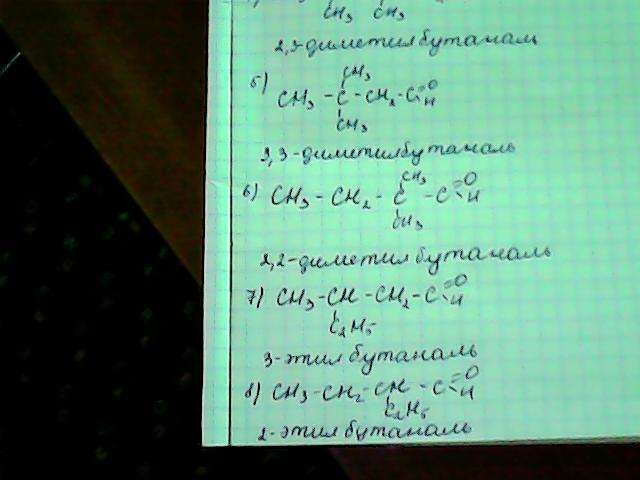 CH3 CH3
2,3-диметилбутаналь
5) CH3 - C - CH2 - C =O H
CH3
CH3
3,3-диметилбутаналь
6) CH3 - CH2 - C - C =O H
CH3
CH3
2,2-диметилбутаналь
7) CH3 - CH - CH2 - C =O H
C2H5
3-этилбутаналь
8) CH3 - CH2 - CH - C =O H
C2H5
2-этилбутаналь